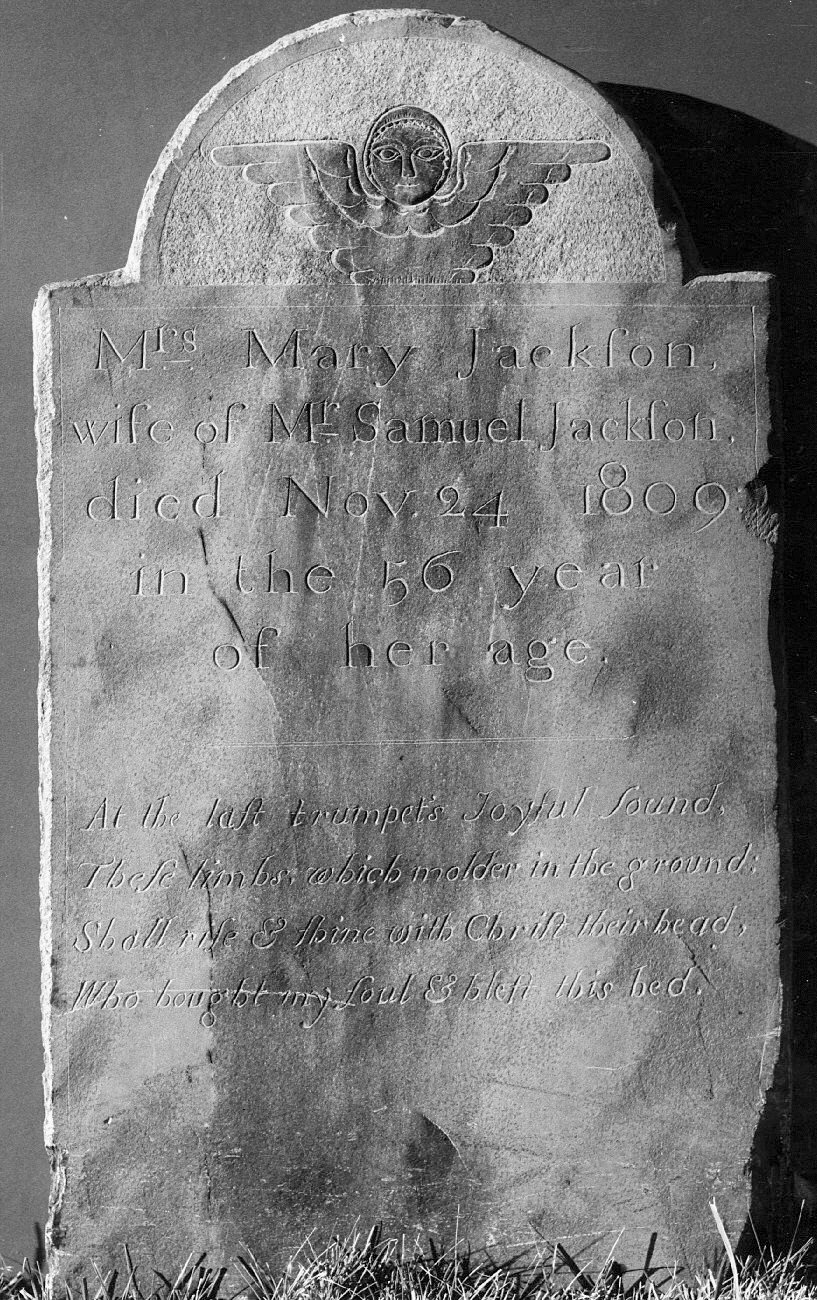 Mrs Mary Jackſon,
wife of Mr Samuel Jackſon,
died Nov. 24 1809.
in the 56 year
of her age.
At the laſt trumpet's Joyful ſound,
Theſe limbs, which molder in the ground;
Shall riſe & ſhine with Chriſt their head,
Who bought my ſoul & bleſt this bed.